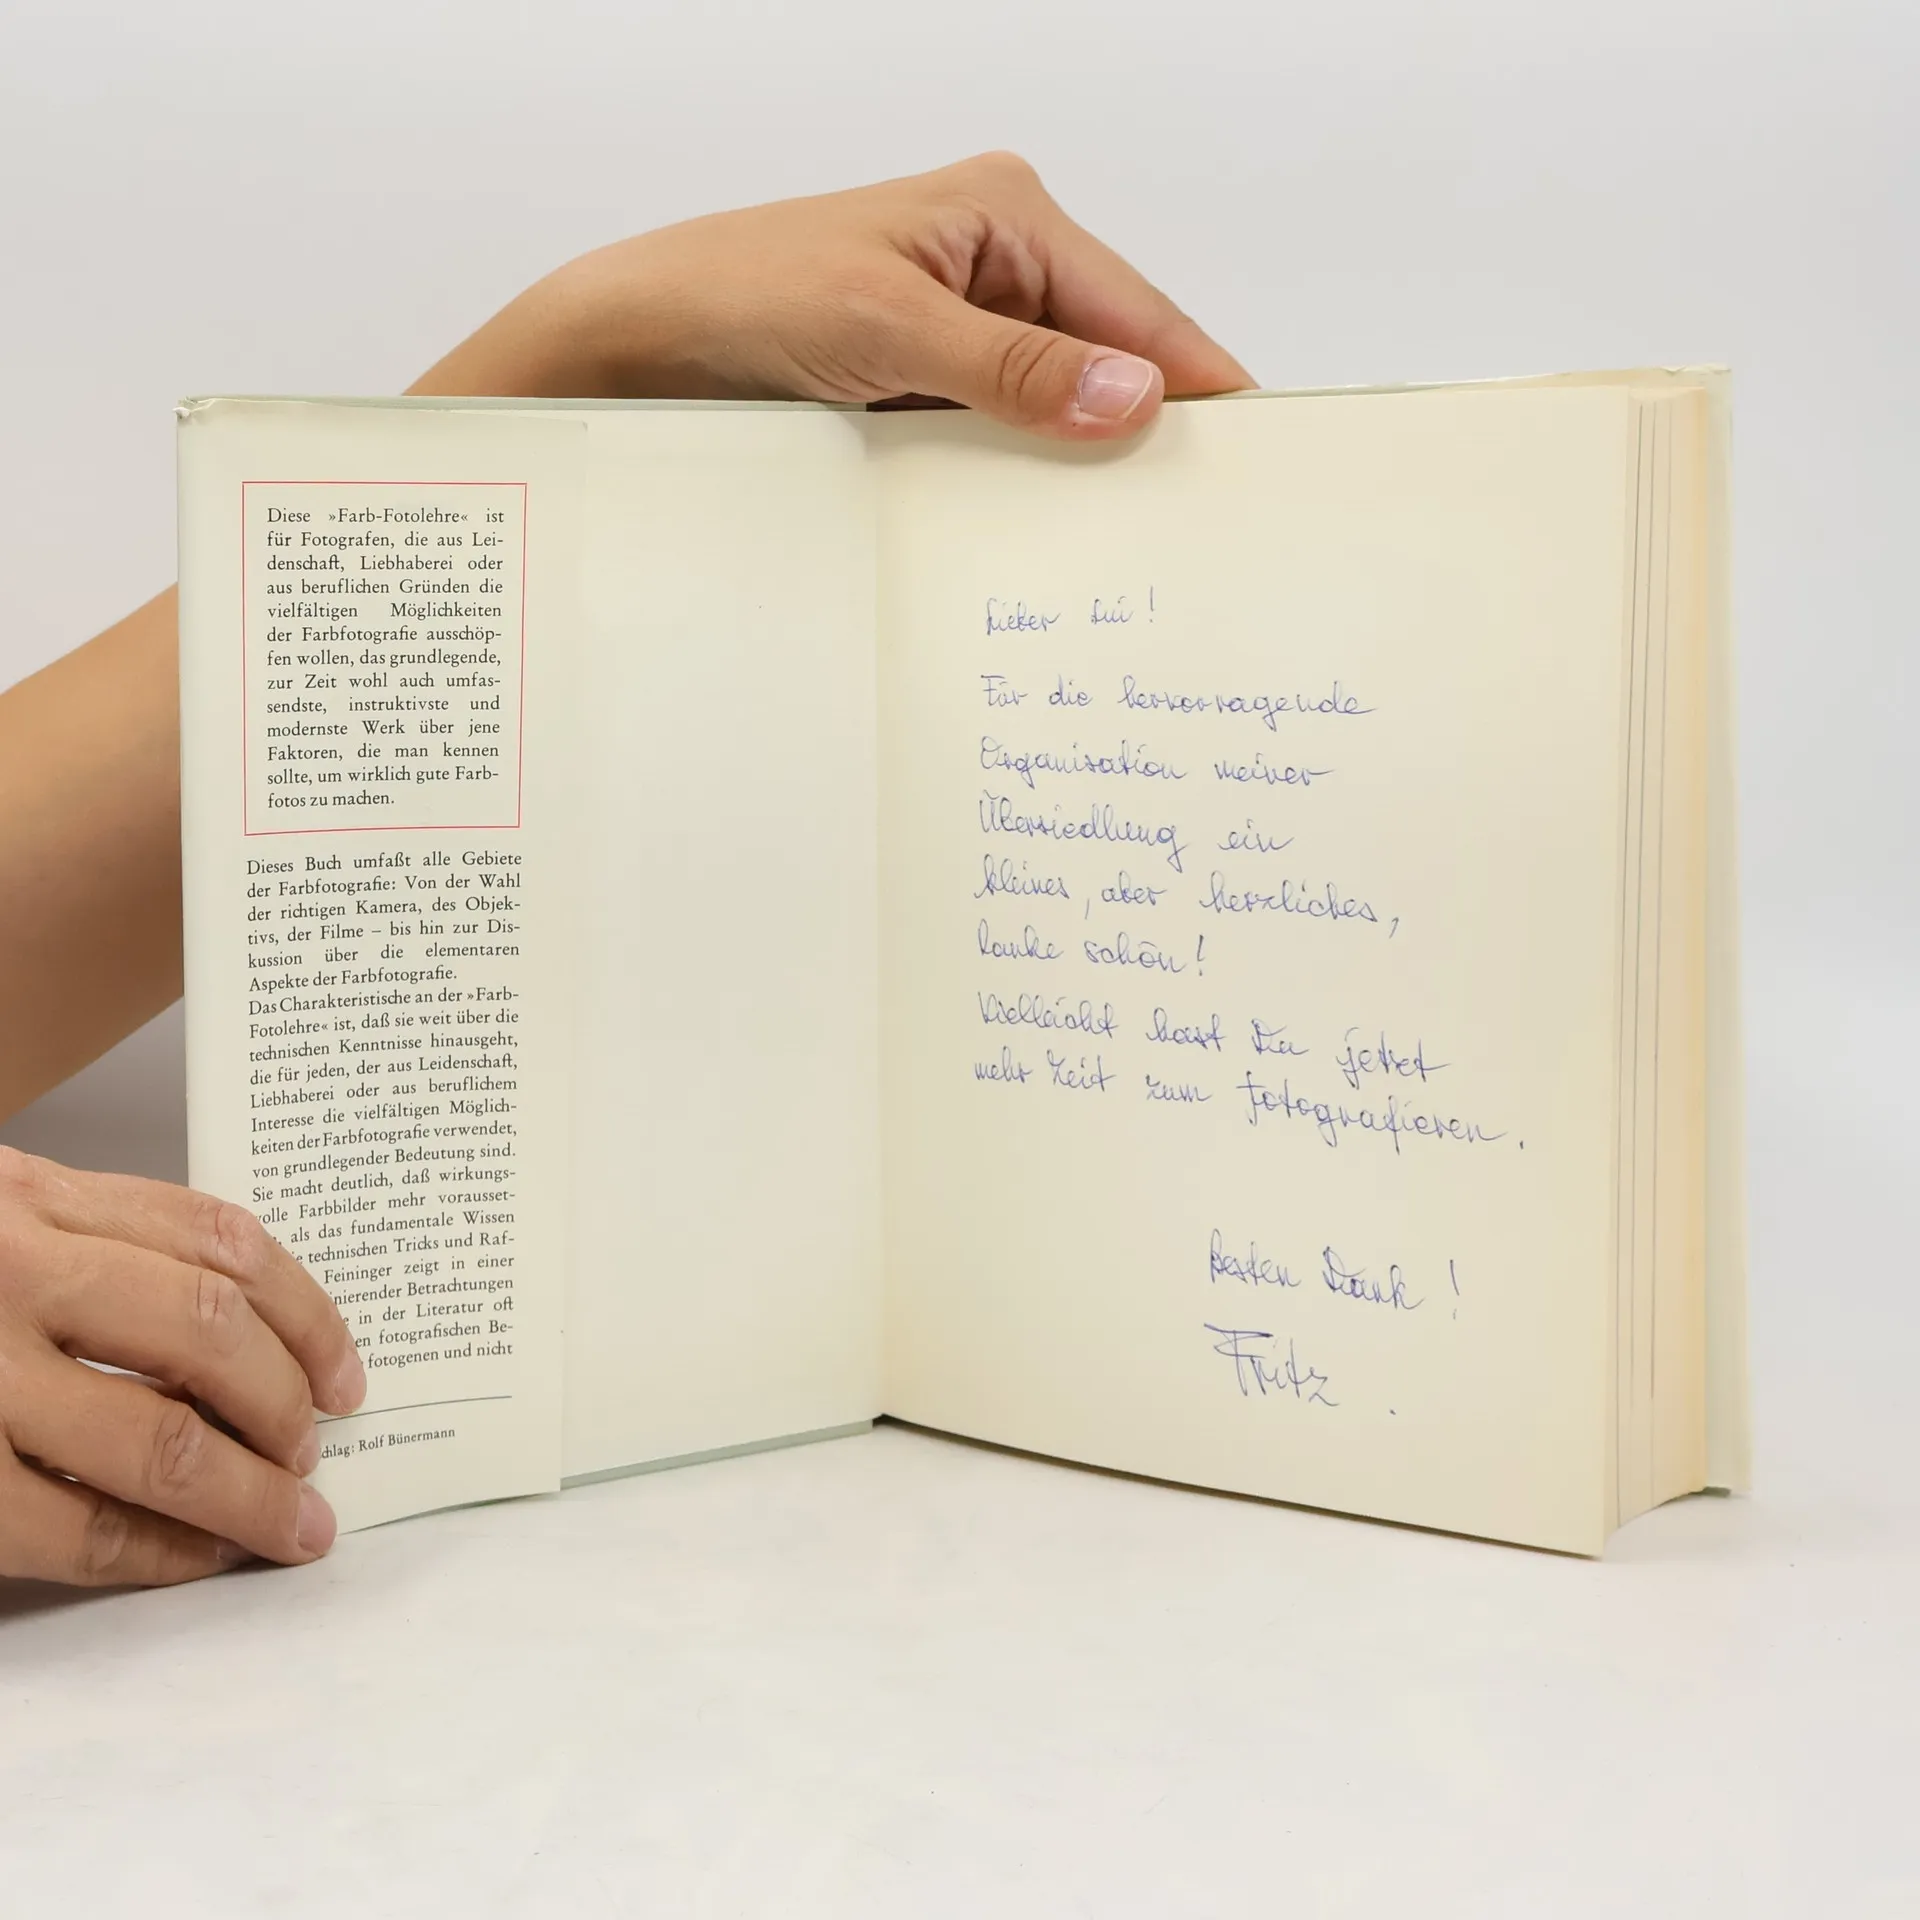 Diese »Farb-Fotolehre« ist
für Fotografen, die aus Lei-
denschaft, Liebhaberei oder
aus beruflichen Gründen die
vielfältigen Möglichkeiten
der Farbfotografie ausschöp-
fen wollen, das grundlegende,
zur Zeit wohl auch umfas-
sendste, instruktivste und
modernste Werk über jene
Faktoren, die man kennen
sollte, um wirklich gute Farb-
fotos zu machen.
Dieses Buch umfaßt alle Gebiete
der Farbfotografie: Von der Wahl
der richtigen Kamera, des Objek-
tivs, der Filme – bis hin zur Dis-
kussion über die elementaren
Aspekte der Farbfotografie.
Das Charakteristische an der »Farb-
Fotolehre« ist, daß sie weit über die
technischen Kenntnisse hinausgeht,
die für jeden, der aus Leidenschaft,
Liebhaberei oder aus beruflichem
Interesse die vielfältigen Möglich-
keiten der Farbfotografie verwendet,
von grundlegender Bedeutung sind.
Sie macht deutlich, daß wirkungs-
volle Farbbilder mehr vorausset-
als das fundamentale Wissen
technischen Tricks und Raf-
Feininger zeigt in einer
inierender Betrachtungen
in der Literatur oft
en fotografischen Be-
fotogenen und nicht
chlag: Rolf Bünermann
Lieber !
Für die hervorragende
Organisation meiner
Übersiedlung ein
kleines, aber herzliches,
Danke schön!
Vielleicht hast Du jetzt
mehr Zeit zum fotografieren.
Besten Dank!
Fritz.